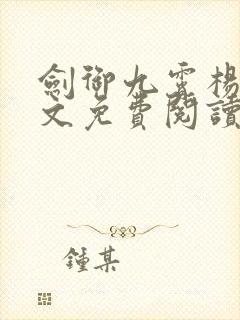 劍御九霄楊
文免費閱讀
鍾某